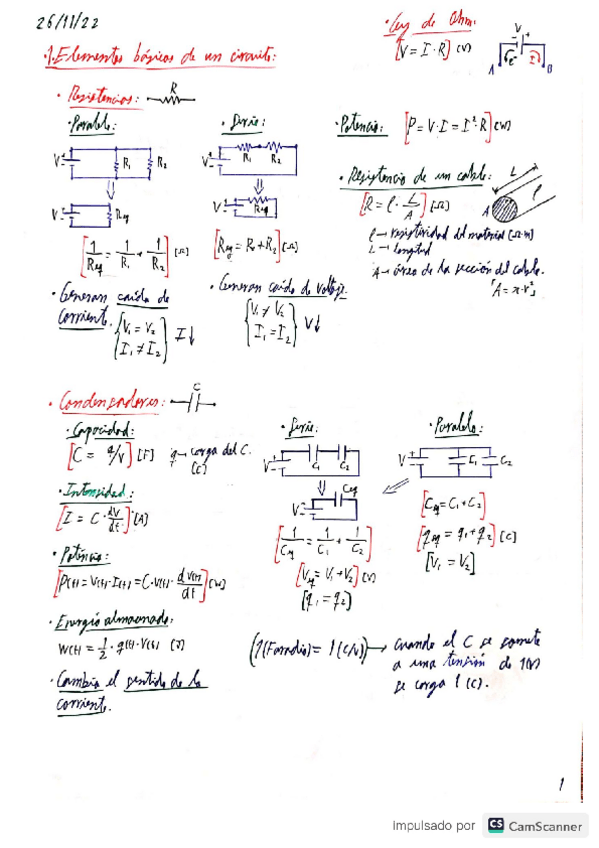 26/11/22
· Ley de Ohm:
[V = I · R] (V)
V
A
e-
I
B
· 1. Elementos básicos de un circuito:
· Resistencias:
R
· Paralelo:
V
R1
R2
V
Req
[1/Req = 1/R1 + 1/R2] [Ω]
· Generan caída de
corriente.
{V1 = V2
I1 ≠ I2} I↓
· Serie:
V
R1
R2
V
Req
[Req = R1 + R2] [Ω]
· Generan caída de voltaje.
{V1 ≠ V2
I1 = I2} V↓
· Potencia: [P = V · I = I² · R] (W)
· Resistencia de un cable:
[R = ρ · L/A] [Ω]
L
A
ρ
ρ → resistividad del material [Ω·m]
L → longitud
A → área de la sección del cable.
「A = π·r²」
· Condensadores:
C
· Capacidad:
[C = q/V] [F]
q → carga del C.
(C)
· Intensidad:
[I = C · dV/dt] [A]
· Potencia:
[P(t) = V(t) · I(t) = C · V(t) · dV(t)/dt] [W]
· Energía almacenada:
W(t) = 1/2 · q(t) · V(t) (J)
· Cambia el sentido de la
corriente.
· Serie:
V
C1
C2
V
Ceq
[1/Ceq = 1/C1 + 1/C2]
[Veq = V1 + V2] (V)
[q1 = q2]
· Paralelo:
V
C1
C2
[Ceq = C1 + C2]
[qeq = q1 + q2] [C]
[V1 = V2]
(1(Faradio) = 1 (C/V)) → Cuando el C se somete
a una tensión de 1(V)
se carga 1 (C).
1
Impulsado por CS CamScanner